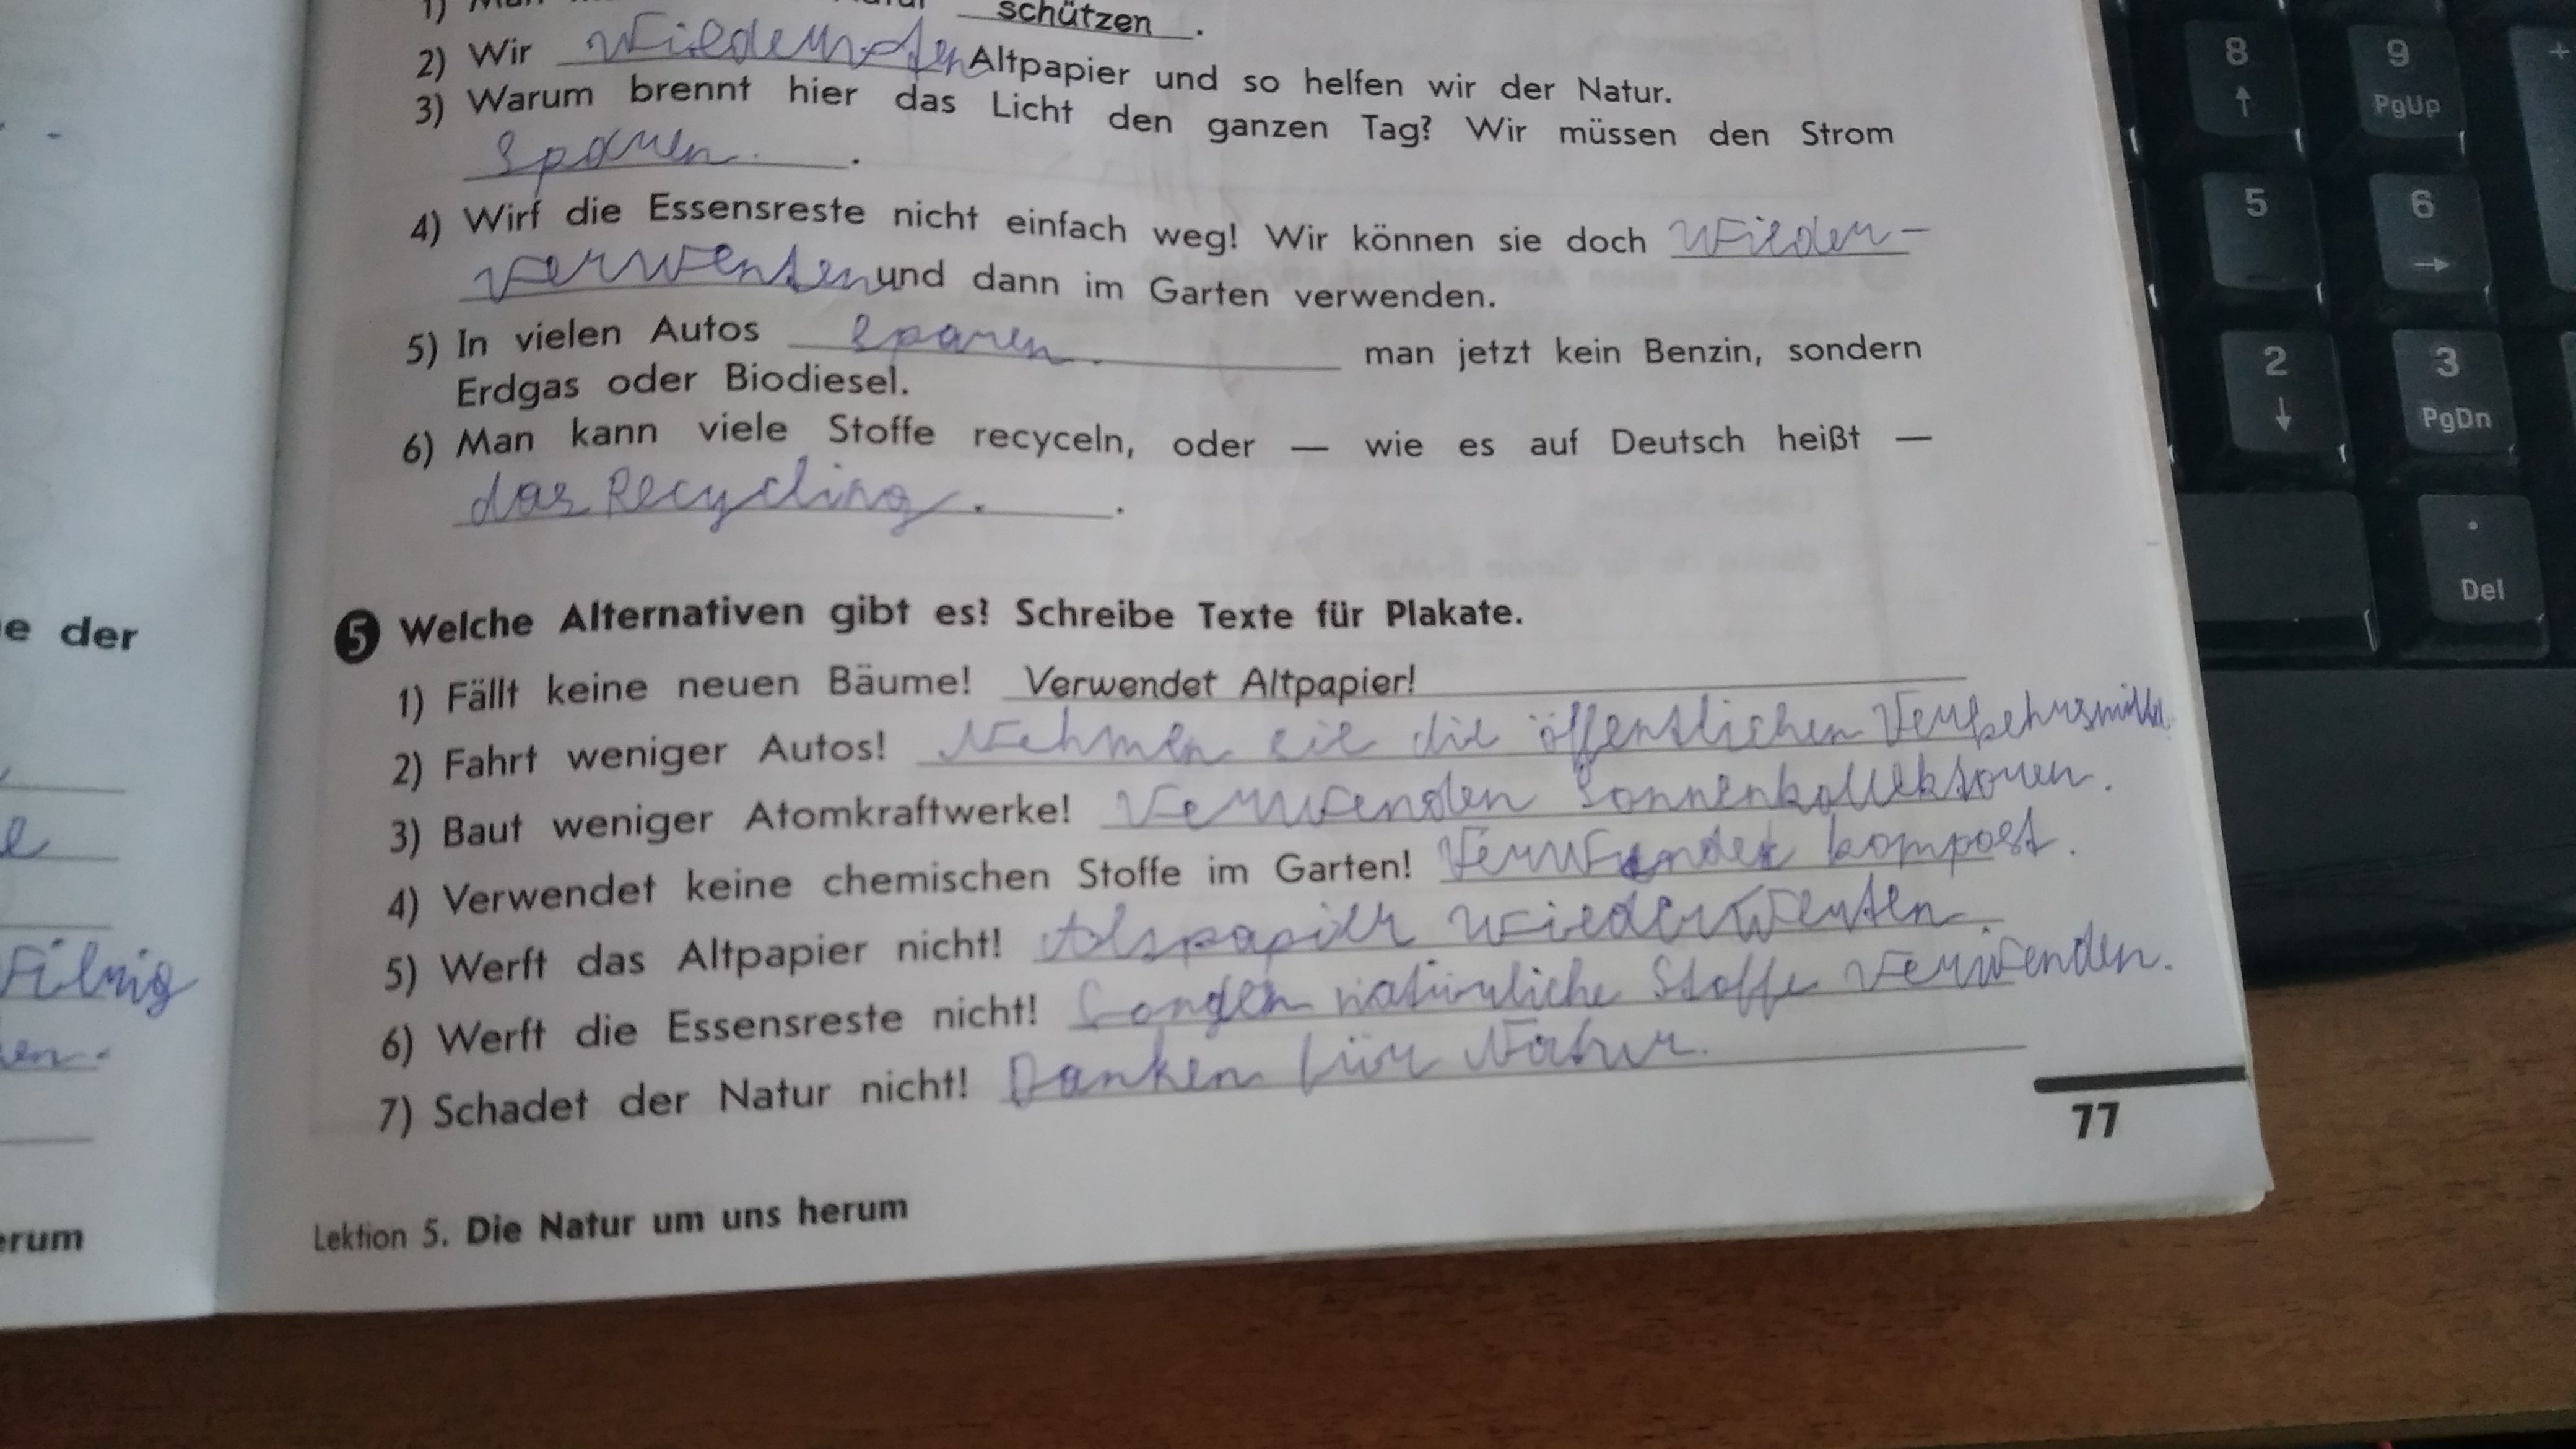 1) schützen.
2) Wir Altpapier und so helfen wir der Natur.
3) Warum brennt hier das Licht den ganzen Tag? Wir müssen den Strom
sparen. .
4) Wirf die Essensreste nicht einfach weg! Wir können sie doch wieder-
verwenten und dann im Garten verwenden.
5) In vielen Autos sparen. man jetzt kein Benzin, sondern
Erdgas oder Biodiesel.
6) Man kann viele Stoffe recyceln, oder — wie es auf Deutsch heißt —
das Recycling. .
5 Welche Alternativen gibt es? Schreibe Texte für Plakate.
1) Fällt keine neuen Bäume! Verwendet Altpapier!
2) Fahrt weniger Autos! Nehmen sie die öffentlichen Verkehrsmittel.
3) Baut weniger Atomkraftwerke! Verwenden Sonnenkollektoren.
4) Verwendet keine chemischen Stoffe im Garten! Verwendet kompost.
5) Werft das Altpapier nicht!
6) Werft die Essensreste nicht! natürliche Stoffe verwenden.
7) Schadet der Natur nicht! Danken für Natur.
77
Lektion 5. Die Natur um uns herum
e der
erum
8
9
PgUp
+
5
6
2
3
PgDn
.
Del